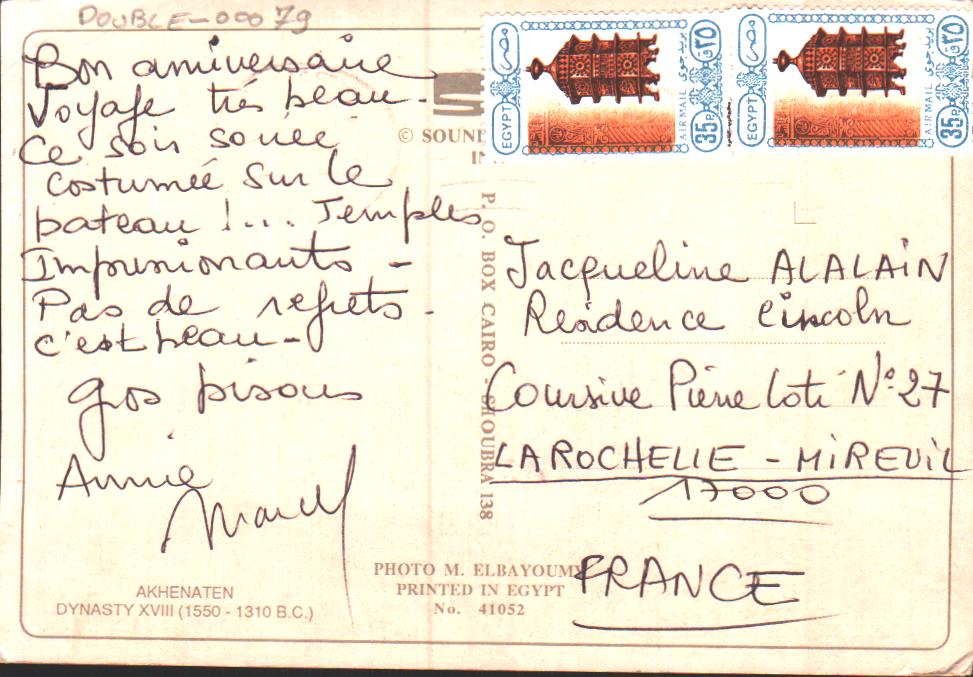 DOUBLE-00079
Bon anniversaire
Voyage très beau -
Ce soir soirée
costumée sur le
bateau !... Temples
Impressionants -
Pas de regrets -
c'est beau -
gros bisous
Annie
Marcel
AKHENATEN
DYNASTY XVIII (1550 - 1310 B.C.)
©
P. O. BOX CAIRO - SHOUBRA 138
PHOTO M. ELBAYOUMY
PRINTED IN EGYPT
No. 41052
EGYPT مصر
AIR MAIL بريد جوى
35P ٣٥
EGYPT مصر
AIR MAIL بريد جوى
35P ٣٥
Jacqueline ALALAIN
Résidence Lincoln
Coursive Pierre Loti N° 27
LA ROCHELLE - MIREUIL
17000
FRANCE